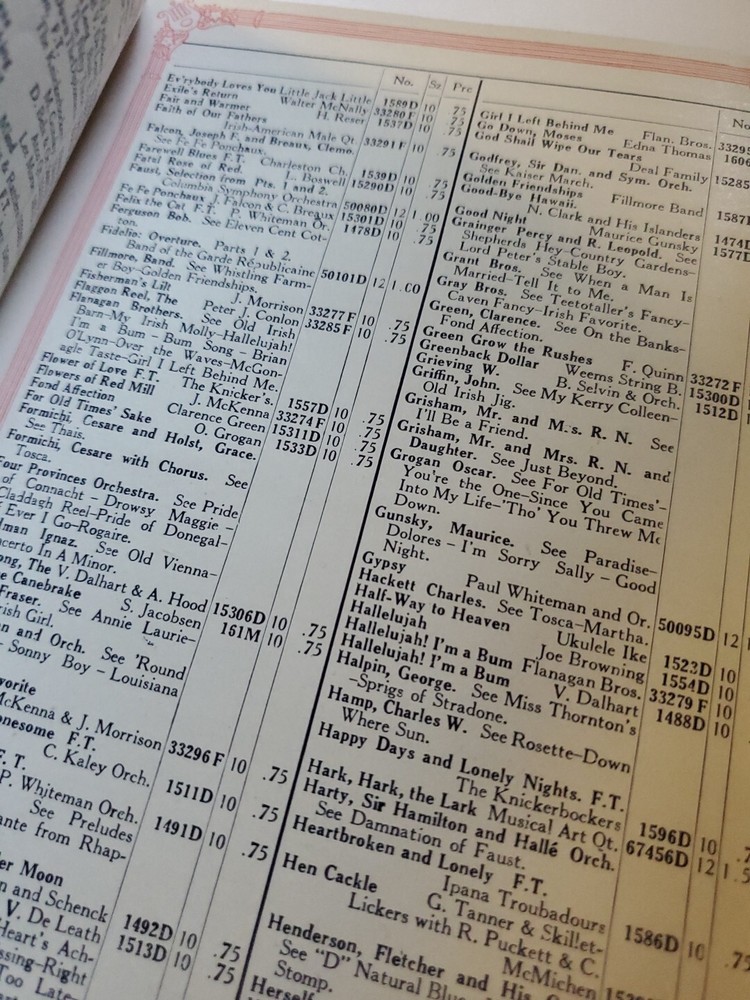 No. Sz Pre
Ev'rybody Loves You Little Jack Little 1589D 10 .75
Exile's Return Walter McNally 33280 F 10 .75
Fair and Warmer H. Reser 1537D 10 .75
Faith of Our Fathers
Irish-American Male Qt. 33291 F 10 .75
Falcon, Joseph F. and Breaux, Clemo.
See Fe Fe Ponchaux.
Farewell Blues F.T. Charleston Ch. 1539D 10 .75
Fatal Rose of Red. L. Boswell 15290D 10 .75
Faust, Selection from Pts. 1 and 2.
Columbia Symphony Orchestra 50080D 12 1.00
Fe Fe Ponchaux J. Falcon & C. Breaux 15301D 10 .75
Felix the Cat F.T. P. Whiteman Or. 1478D 10 .75
Ferguson Bob. See Eleven Cent Cot-
ton.
Fidelio: Overture. Parts 1 & 2.
Band of the Garde Républicaine 50101D 12 1.00
Fillmore, Band. See Whistling Farm-
er Boy-Golden Friendships.
Fisherman's Lilt J. Morrison 33277 F 10 .75
Flaggon Reel, The Peter J. Conlon 33285 F 10 .75
Flanagan Brothers. See Old Irish
Barn-My Irish Molly-Hallelujah!
I'm a Bum - Bum Song - Brian
O'Lynn-Over the Waves-McGon-
agle Taste-Girl I Left Behind Me.
Flower of Love F.T. The Knicker's. 1557D 10 .75
Flowers of Red Mill J. McKenna 33274 F 10 .75
Fond Affection Clarence Green 15311D 10 .75
For Old Times' Sake O. Grogan 1533D 10 .75
Formichi, Cesare and Holst, Grace.
See Thais.
Formichi, Cesare with Chorus. See
Tosca.
Four Provinces Orchestra. See Pride
of Connacht - Drowsy Maggie -
Claddagh Reel-Pride of Donegal-
Ever I Go-Rogaire.
Ignaz. See Old Vienna-
In A Minor.
The V. Dalhart & A. Hood 15306D 10 .75
Canebrake S. Jacobsen 161M 10 .75
Fraser. See Annie Laurie-
Girl.
and Orch. See 'Round
- Sonny Boy - Louisiana
McKenna & J. Morrison 33296 F 10 .75
F.T.
C. Kaley Orch. 1511D 10 .75
F.T.
P. Whiteman Orch. 1491D 10 .75
See Preludes
from Rhap-
Moon
and Schenck 1492D 10 .75
V. De Leath 1513D 10 .75
Heart's Ach-
Right
Too Late-
No.
Girl I Left Behind Me Flan. Bros.
Go Down, Moses Edna Thomas
God Shall Wipe Our Tears
Deal Family
Godfrey, Sir Dan. and Sym. Orch.
See Kaiser March.
Golden Friendships Fillmore Band
Good-Bye Hawaii.
N. Clark and His Islanders
Good Night Maurice Gunsky
Grainger Percy and R. Leopold. See
Shepherds Hey-Country Gardens-
Lord Peter's Stable Boy.
Grant Bros. See When a Man Is
Married-Tell It to Me.
Gray Bros. See Teetotaller's Fancy-
Caven Fancy-Irish Favorite.
Green, Clarence. See On the Banks-
Fond Affection.
Green Grow the Rushes F. Quinn 33272 F
Greenback Dollar Weems String B. 15300D
Grieving W. B. Selvin & Orch. 1512D
Griffin, John. See My Kerry Colleen-
Old Irish Jig.
Grisham, Mr. and Mrs. R. N. See
I'll Be a Friend.
Grisham, Mr. and Mrs. R. N. and
Daughter. See Just Beyond.
Grogan Oscar. See For Old Times'-
You're the One-Since You Came
Into My Life-'Tho' You Threw Me
Down.
Gunsky, Maurice. See Paradise-
Dolores - I'm Sorry Sally - Good
Night.
Gypsy Paul Whiteman and Or. 50095D 12
Hackett Charles. See Tosca-Martha.
Half-Way to Heaven Ukulele Ike 1523D 10
Hallelujah Joe Browning 1554D 10
Hallelujah! I'm a Bum Flanagan Bros. 33279 F 10
Hallelujah! I'm a Bum V. Dalhart 1488D 10
Halpin, George. See Miss Thornton's
-Sprigs of Stradone.
Hamp, Charles W. See Rosette-Down
Where Sun.
Happy Days and Lonely Nights. F.T.
The Knickerbockers 1596D 10
Hark, Hark, the Lark Musical Art Qt. 67456D 12
Harty, Sir Hamilton and Hallé Orch.
See Damnation of Faust.
Heartbroken and Lonely F.T.
Ipana Troubadours 1586D 10 .75
Hen Cackle G. Tanner & Skillet-
Lickers with R. Puckett & C.
McMichen
Henderson, Fletcher and His
See "D" Natural
Stomp.
Herself